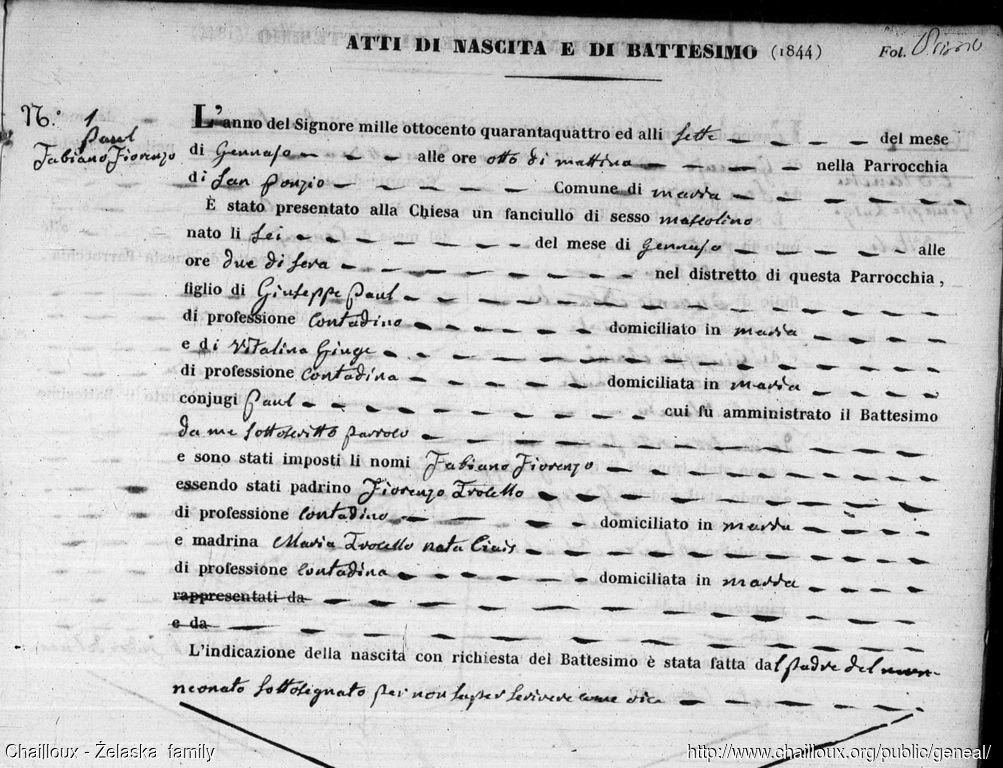 ATTI DI NASCITA E DI BATTESIMO (1844) Fol. Primo
N.º 1
Paul
Fabiano Fiorenzo
L'anno del Signore mille ottocento quarantaquattro ed alli sette del mese
di Gennajo alle ore otto di mattina nella Parrocchia
di San Ponzio Comune di
È stato presentato alla Chiesa un fanciullo di sesso mascolino
nato li sei del mese di Gennajo alle
ore due di sera nel distretto di questa Parrocchia,
figlio di Giuseppe Paul
di professione contadino domiciliato in
e di Vitalina Ginge
di professione contadina domiciliata in
conjugi Paul cui fu amministrato il Battesimo
da me sottoscritto parroco
e sono stati imposti li nomi Fabiano Fiorenzo
essendo stati padrino Fiorenzo Trolello
di professione contadino domiciliato in
e madrina Maria Trolello nata Ciais
di professione contadina domiciliata in
rappresentati da
e da
L'indicazione della nascita con richiesta del Battesimo è stata fatta dal padre del
neonato sottosignato per non saper scrivere come dice
Chailloux - Żelaska family
http://www.chailloux.org/public/geneal/